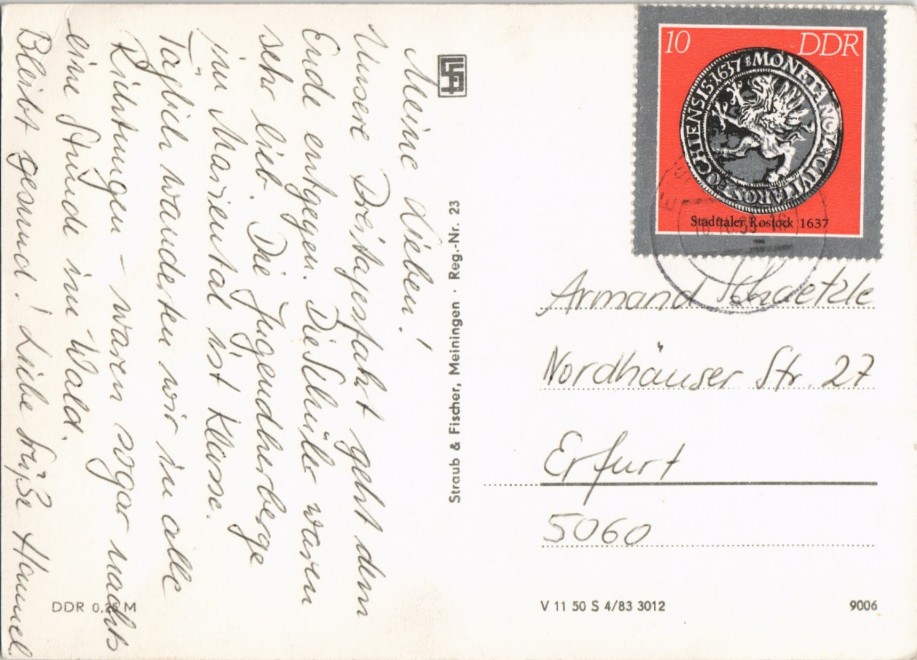 Meine Lieben!
Unsere Dreitagesfahrt geht dem
Ende entgegen. Die Schüler waren
sehr lieb. Die Jugendherberge
im Mariental ist Klasse.
Täglich wanderten wir in alle
Richtungen – waren sogar nachts
eine Stunde im Wald.
Bleibt gesund! Liebe Grüße Hannel
Straub & Fischer, Meiningen · Reg.-Nr. 23
10 DDR
MONETA NO CIVITA ROSTOCHIENSIS·1637
Stadttaler Rostock 1637
Armand Schaetzle
Nordhäuser Str. 27
Erfurt
5060
DDR 0,25 M
V 11 50 S 4/83 3012
9006